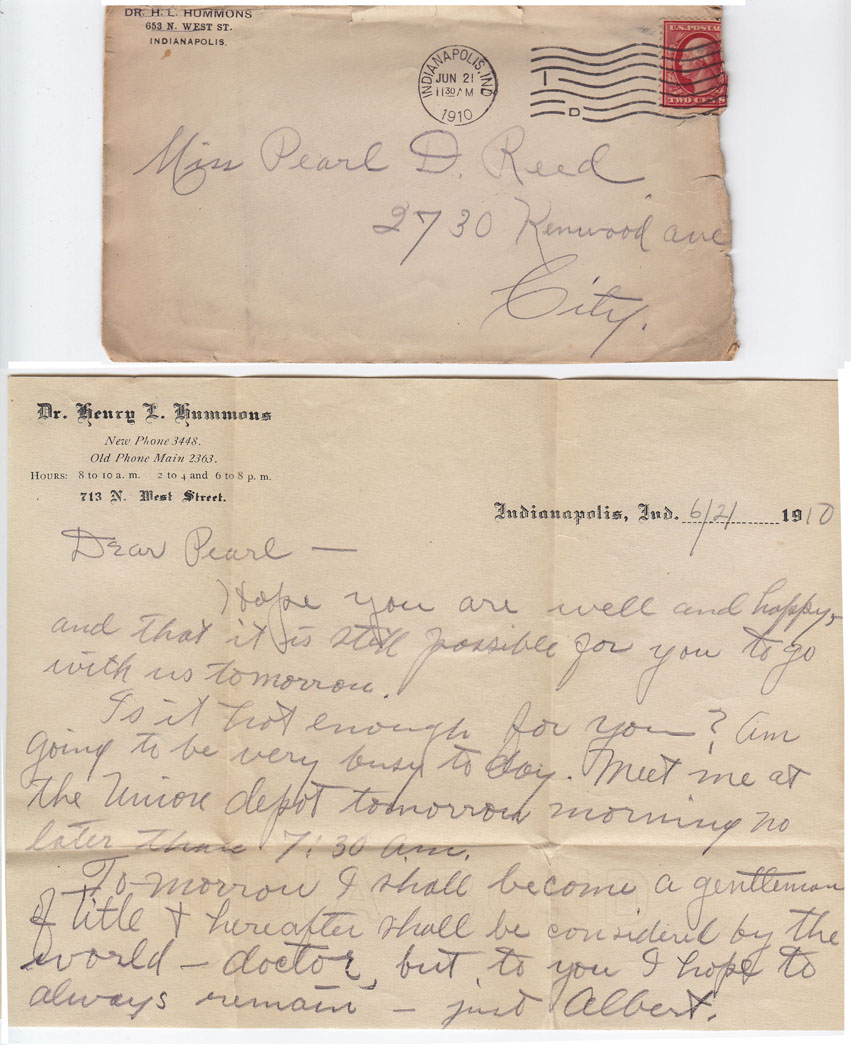 DR. H. L. HUMMONS
653 N. WEST ST.
INDIANAPOLIS.
INDIANAPOLIS, IND.
JUN 21
11 30 AM
1910
I
D
U.S. POSTAG
TWO CENTS
Miss Pearl D. Reed
2730 Kenwood ave
City.
Dr. Henry L. Hummons
New Phone 3448.
Old Phone Main 2363.
HOURS: 8 to 10 a. m. 2 to 4 and 6 to 8 p. m.
713 N. West Street.
Indianapolis, Ind. 6/21 1910
Dear Pearl —
Hope you are well and happy,
and that it is still possible for you to go
with us tomorrow.
Is it hot enough for you? Am
going to be very busy to day. Meet me at
the Union depot tomorrow morning no
later than 7:30 a.m.
To-morrow I shall become a gentleman
of title & hereafter shall be considered by the
world — doctor, but to you I hope to
always remain — just Albert.